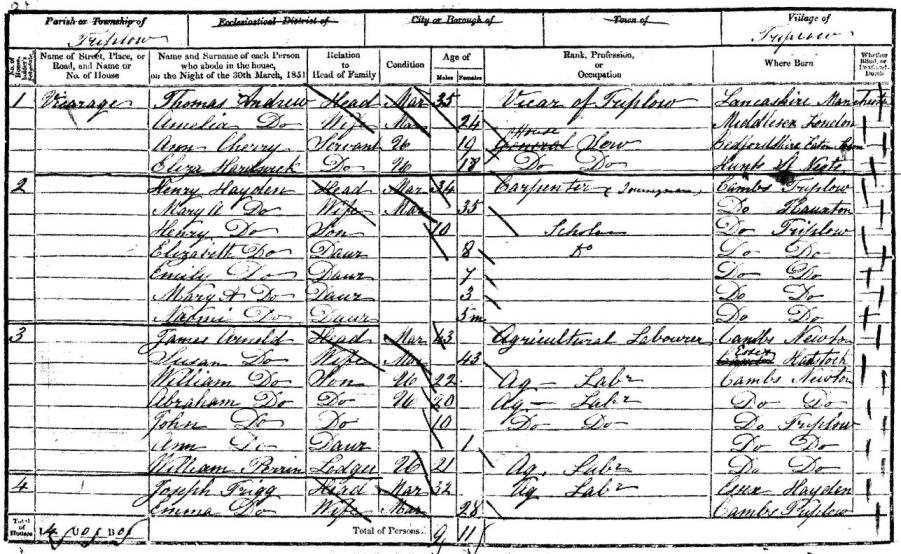 Parish or Township of Ecclesiastical District of City or Borough of Town of Village of
Triplow Triplow
No. of House Name of Street, Place, or Road, and Name or No. of House Name and Surname of each Person who abode in the house, on the Night of the 30th March, 1851 Relation to Head of Family Condition Age of Males Females Rank, Profession, or Occupation Where Born Whether Blind, or Deaf-and-Dumb
1 Vicarage Thomas Andrew Head Mar 35 Vicar of Triplow Lancashire Manchester
Amelia Do Wife Mar 24 Middlesex London
Ann Cherry Servant U 19 House General Serv Bedfordshire Eaton
Eliza Hardwick Do U 18 Do Do Hunts St Neots
2 Henry Hayden Head Mar 34 Carpenter (Journeyman) Cambs Triplow
Mary A Do Wife Mar 35 Do Hauxton
Henry Do Son 10 Scholar Do Triplow
Elizabeth Do Daur 8 Do Do Do
Emily Do Daur 7 Do Do
Mary A Do Daur 3 Do Do
Naomi Do Daur 5m Do Do
3 James Arnold Head Mar 43 Agricultural Labourer Cambs Newton
Susan Do Wife Mar 43 Essex Hadstock
William Do Son U 22 Ag Labr Cambs Newton
Abraham Do Do U 20 Ag Labr Do Do
John Do Do 10 Do Do Do Triplow
Ann Do Daur 1 Do Do
William Perrin Lodger U 21 Ag. Labr Do Do
4 Joseph Trigg Head Mar 32 Ag Labr Essex Hayden
Emma Do Wife Mar 28 Cambs Triplow
Total of Houses 4 U B Total of Persons 9 11